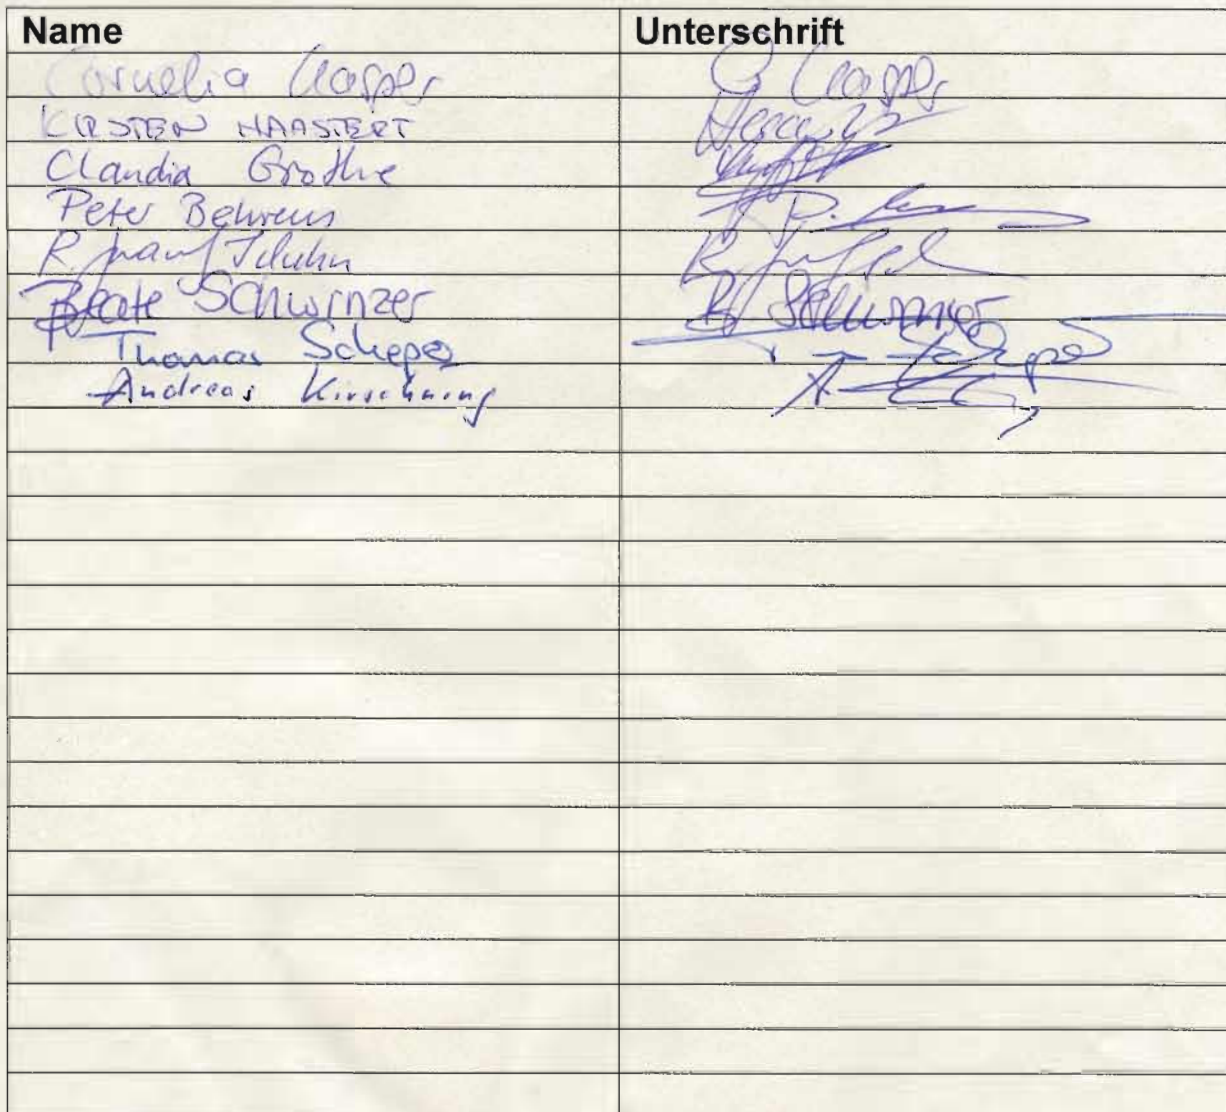 Name Unterschrift
Cornelia Kasper C. Kasper
KIRSTEN HAASTERT
Claudia Grothe
Peter Behrens P.
R.
Beate Schwinzer B. Schwinzer
Thomas Scheper T. Scheper
Andreas Kirschning A.